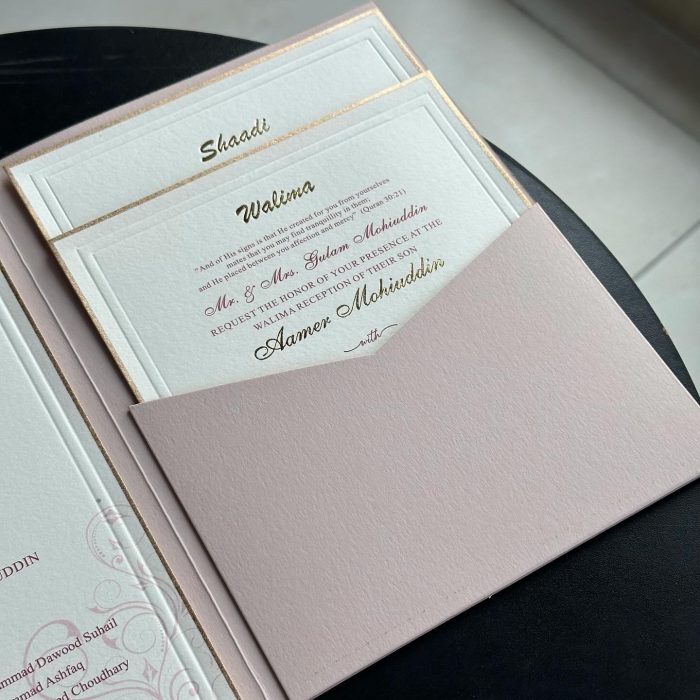 Shaadi
Walima
"And of His signs is that He created for you from yourselves
mates that you may find tranquility in them;
and He placed between you affection and mercy" (Quran 30:21)
Mr. & Mrs. Gulam Mohiuddin
REQUEST THE HONOR OF YOUR PRESENCE AT THE
WALIMA RECEPTION OF THEIR SON
Aamer Mohiuddin
with
UDDIN
mmad Dawood Suhail
mmad Ashfaq
ed Choudhary